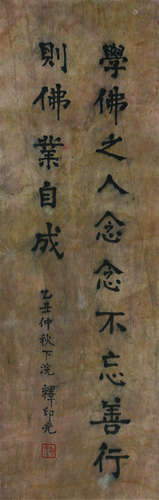 學佛之人念念不忘善行
則佛業自成
乙丑仲秋下浣 釋印光